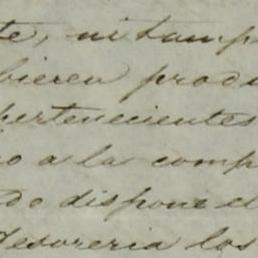 te, ni tamp
bieren produ
pertenecientes
io a la comp
do dispone el
Tesoreria los